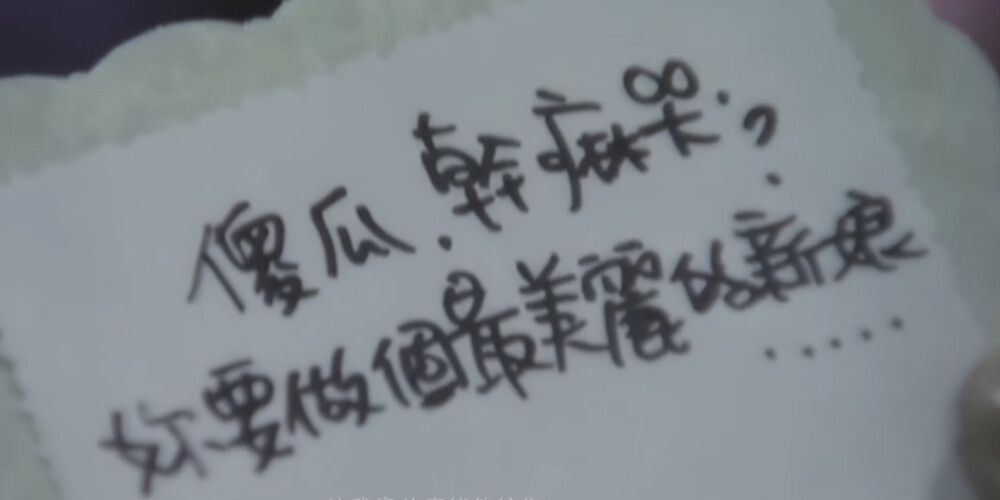 傻瓜.幹嘛哭?
妳要做個最美麗的新娘
.....